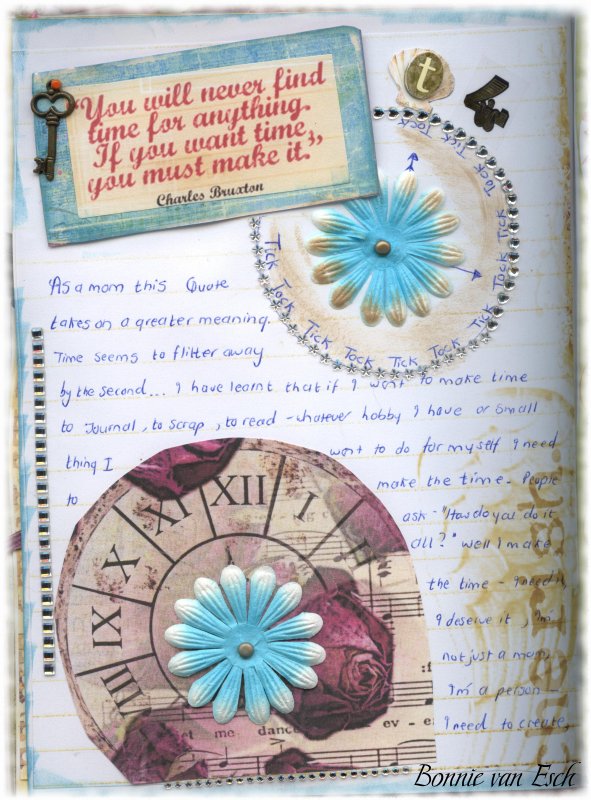 "You will never find
time for anything.
If you want time,
you must make it."
Charles Bruxton
t
Tick Tock Tick Tock Tick Tock Tick Tock Tick Tock Tick Tock Tick Tock
As a mom this Quote
takes on a greater meaning.
Time seems to flitter away
by the second... I have learnt that if I want to make time
to Journal, to scrap, to read - whatever hobby I have or small
thing I want to do for myself I need
to make the time - People
ask - "How do you do it
all?" well I make
the time - I need it,
I deserve it, I'm
not just a mom,
I'm a person -
I need to create,
XII
I
II
XI
X
IX
VIII
et me dance
ev - e
Bonnie van Esch